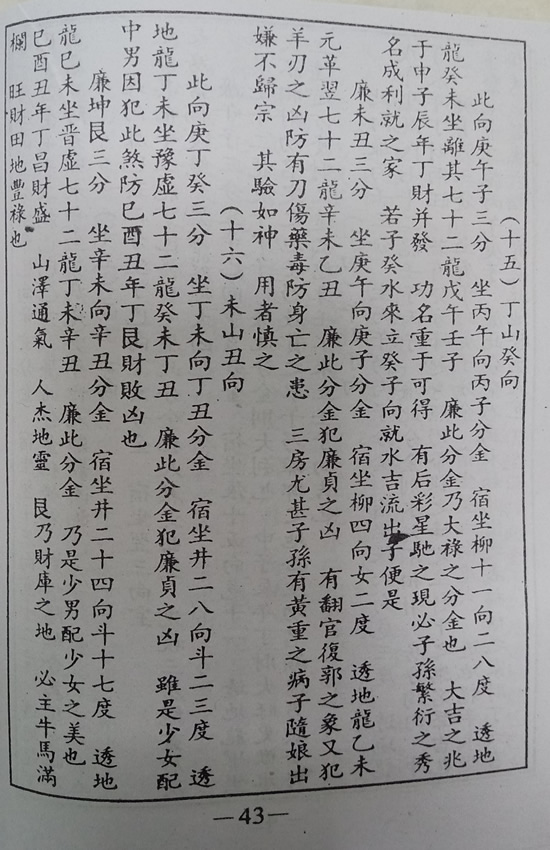 （十五）丁山癸向
此向庚午子三分　坐丙午向丙子分金　宿坐柳十一向二八度　透地
龍癸未坐離其七十二龍戊午壬子　廉此分金乃大祿之分金也　大吉之兆
于申子辰年丁財并發　功名重于可得　有后彩星馳之現必子孫繁衍之秀
名成利就之家　若子癸水來立癸子向就水吉流出子便是
廉未丑三分　坐庚午向庚子分金　宿坐柳四向女二度　透地龍乙未
元革翌七十二龍辛未乙丑　廉此分金犯廉貞之凶　有翻官復郭之象又犯
羊刃之凶防有刀傷藥毒防身亡之患　三房尤甚子孫有黃重之病子隨娘出
嫌不歸宗　其驗如神　用者慎之
（十六）未山丑向
此向庚丁癸三分　坐丁未向丁丑分金　宿坐井二八向斗二三度　透
地龍丁未坐豫虛七十二龍癸未丁丑　廉此分金犯廉貞之凶　雖是少女配
中男因犯此煞防巳酉丑年丁艮財敗凶也
廉坤艮三分　坐辛未向辛丑分金　宿坐井二十四向斗十七度　透地
龍巳未坐晋虛七十二龍丁未辛丑　廉此分金　乃是少男配少女之美也
巳酉丑年丁昌財盛　山澤通氣　人杰地靈　艮乃財庫之地　必主牛馬滿
欄　旺財田地豐祿也
—43—